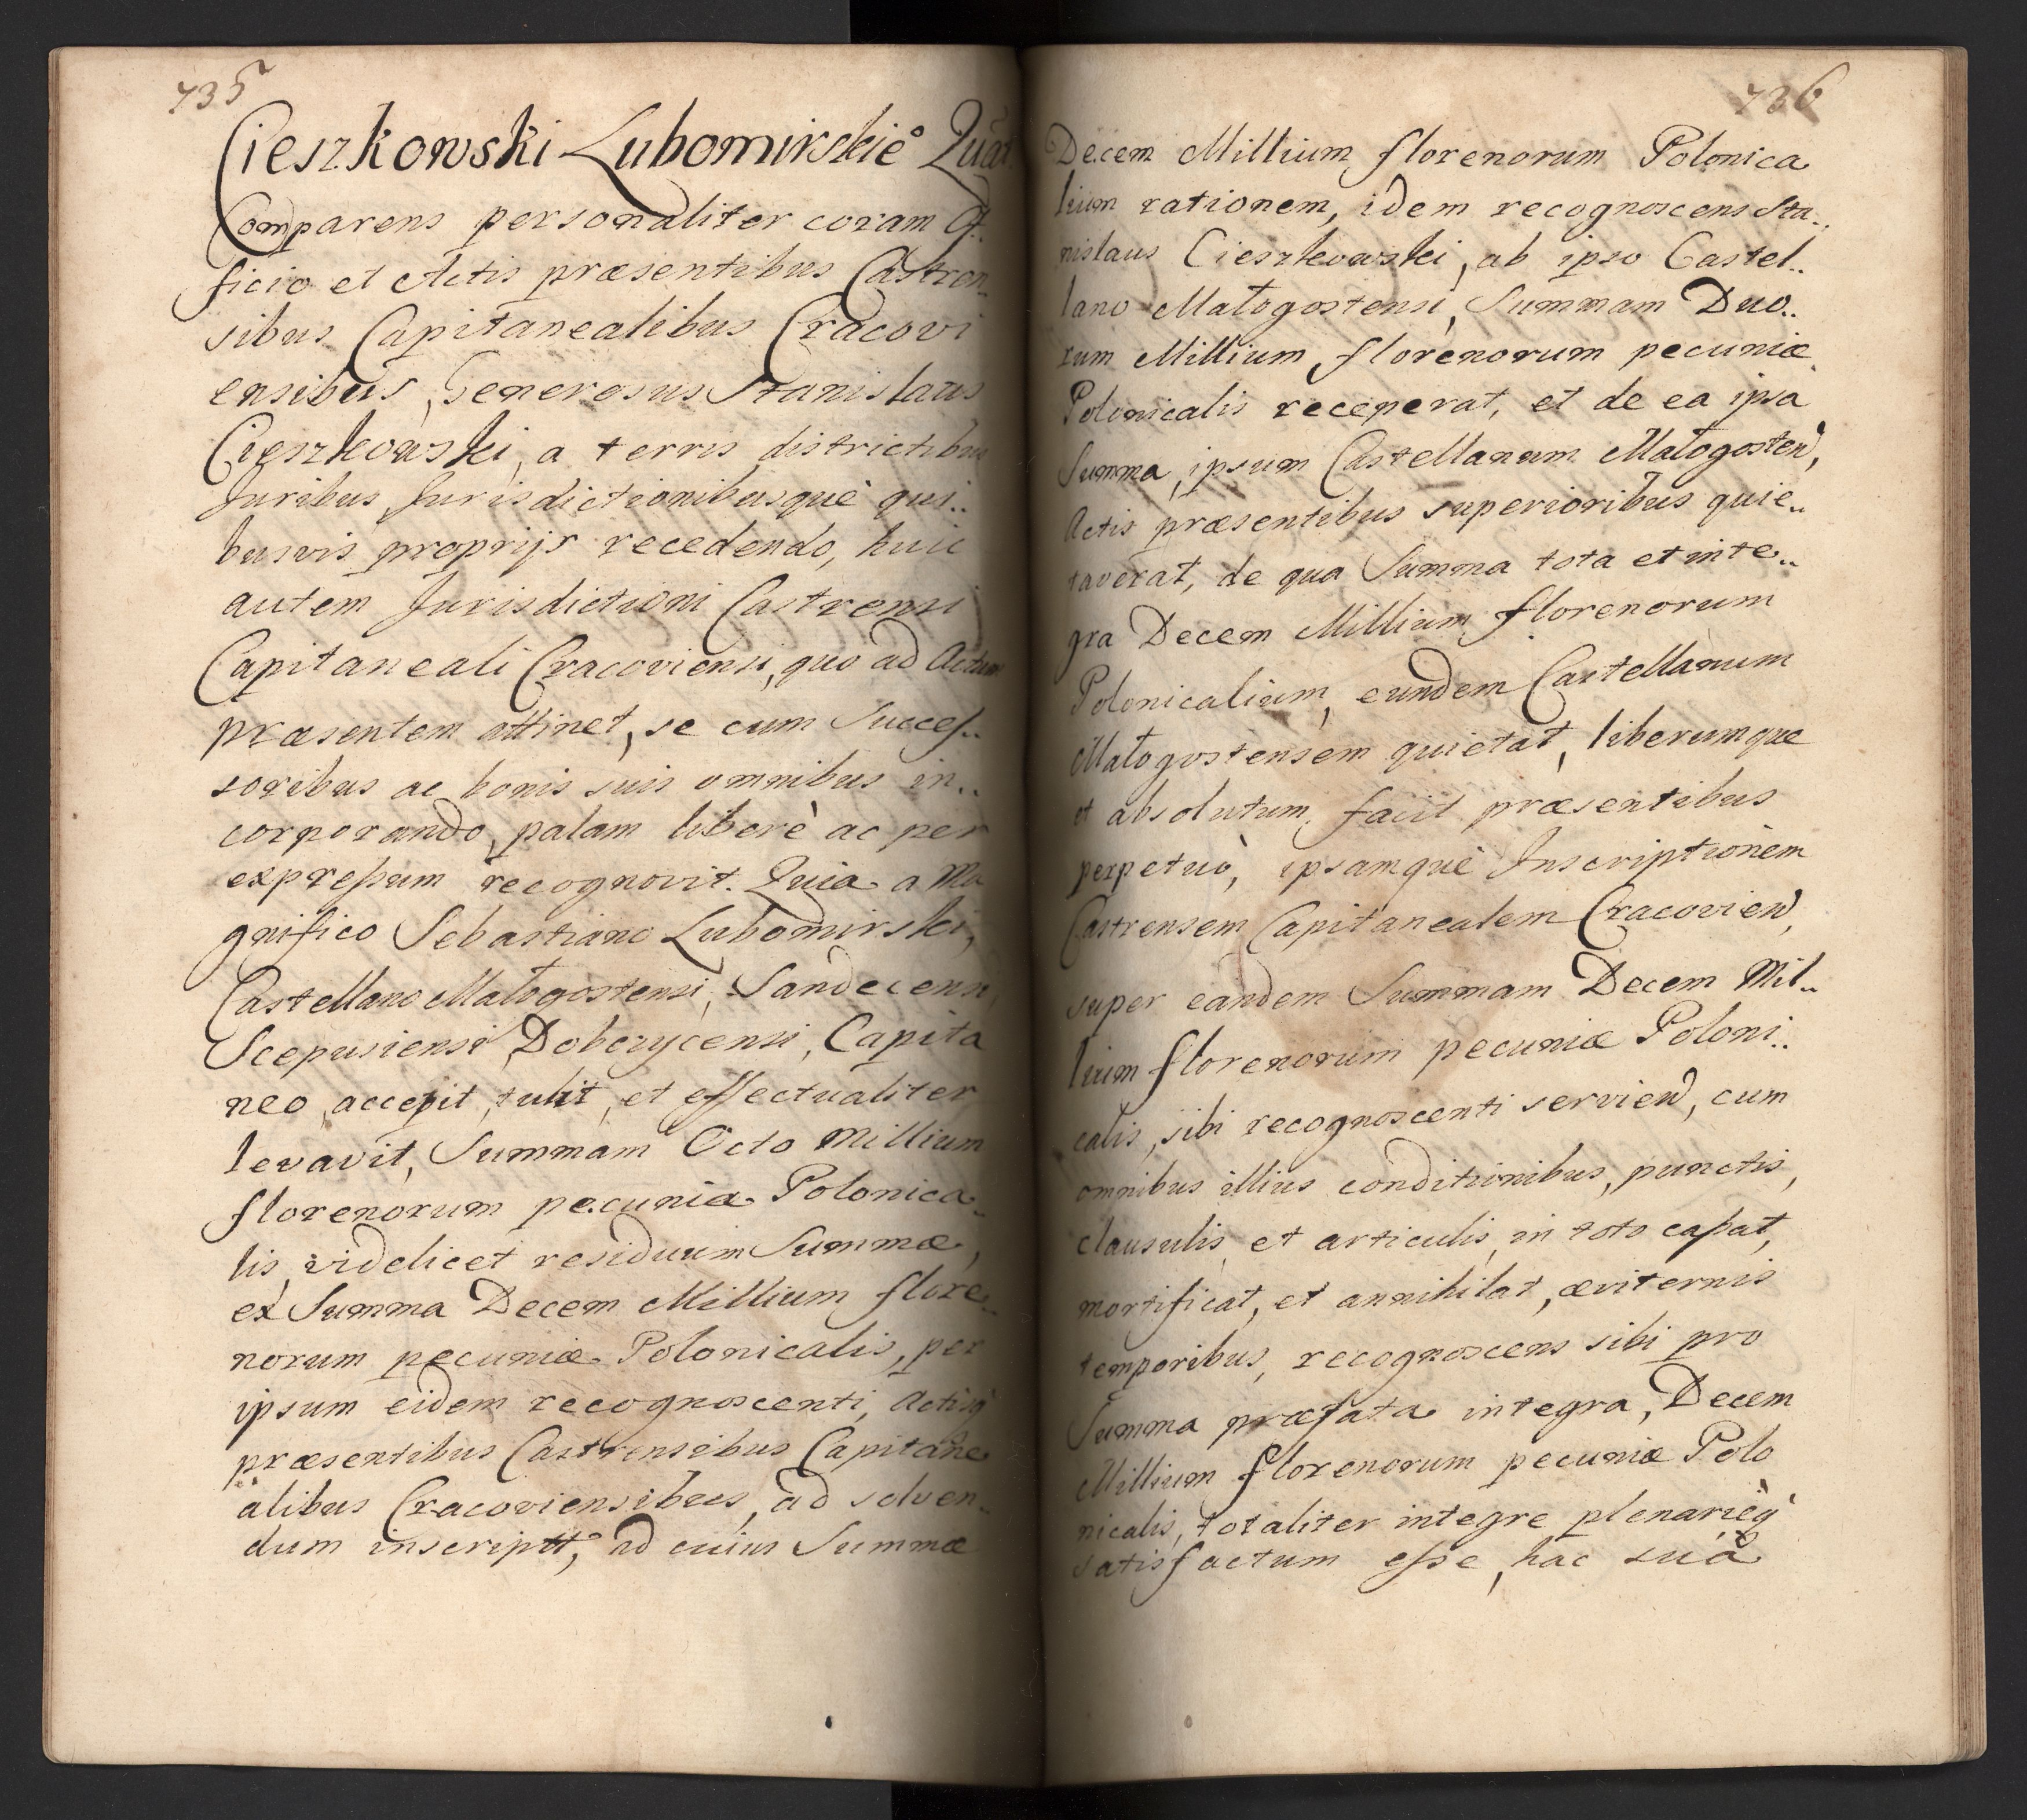 735
Cieszkowski Lubomirskiē Quāt
Comparens personaliter coram Of..
ficio et Actis præsentibus Castren
sibus Capitanealibus Cracovi
ensibus, Generosus Stanislaus
Cieszkowski, a terris, districtibus
Juribus Jurisdictionibusquè qui..
busvis proprijs recedendo, huic
autem Jurisdictioni Castrensi
Capitaneali Cracoviensi, quo ad Actum
præsentem attinet, se cum Succeſ..
soribus ac bonis suis omnibus in..
corporando, palam liberè ac per
expreſsum recognovit. Quia a Ma
gnifico Sebastiano Lubomirski,
Castellano Małogostensi, Sandecensi
Scepusiensi Dobczycensi, Capita
neo, accepit, tulit, et effectualiter
levavit, Summam Octo Millium
florenorum pecuniæ Polonica
lis, videlicet residuum Summæ,
ex Summa Decem Millium flore..
norum pecuniæ Polonicalis, per
ipsum eidem recognoscenti, Actisq̀
præsentibus Castrensibus Capitane
alibus Cracoviensibus, ad solven..
dum inscriptt, ad cuius Summæ
736
Decem Millium florenorum Polonica
lium rationem, idem recognoscens Sta..
nislaus Cieszkowski, ab ipso Castel..
lano Małogostensi, Summam Duo..
rum Millium florenorum pecuniæ
Polonicalis receperat, et de ea ipsa
Summa, ipsum Castellanum Małogosten,
Actis præsentibus superioribus quie..
taverat, de qua Summa tota et inte..
gra Decem Millium florenorum
Polonicalium, eundem Castellanum
Małogostensem quietat, liberumque
et absolutum facit præsentibus
perpetuò, ipsamquè Inscriptionem
Castrensem Capitanealem Cracovien,
super eandem Summam Decem Mil..
lium florenorum pecuniæ Poloni..
calis, sibi recognoscenti servien, cum
omnibus illius conditionibus, punctis,
clausulis, et articulis, in toto caſsat,
mortificat, et annihilat, æviternis
temporibus, recognoscens sibi pro
Summa præfata integra, Decem
Millium florenorum pecuniæ Polo
nicalis, totaliter integre plenarieq̀
satisfactum eſse, hac suâ